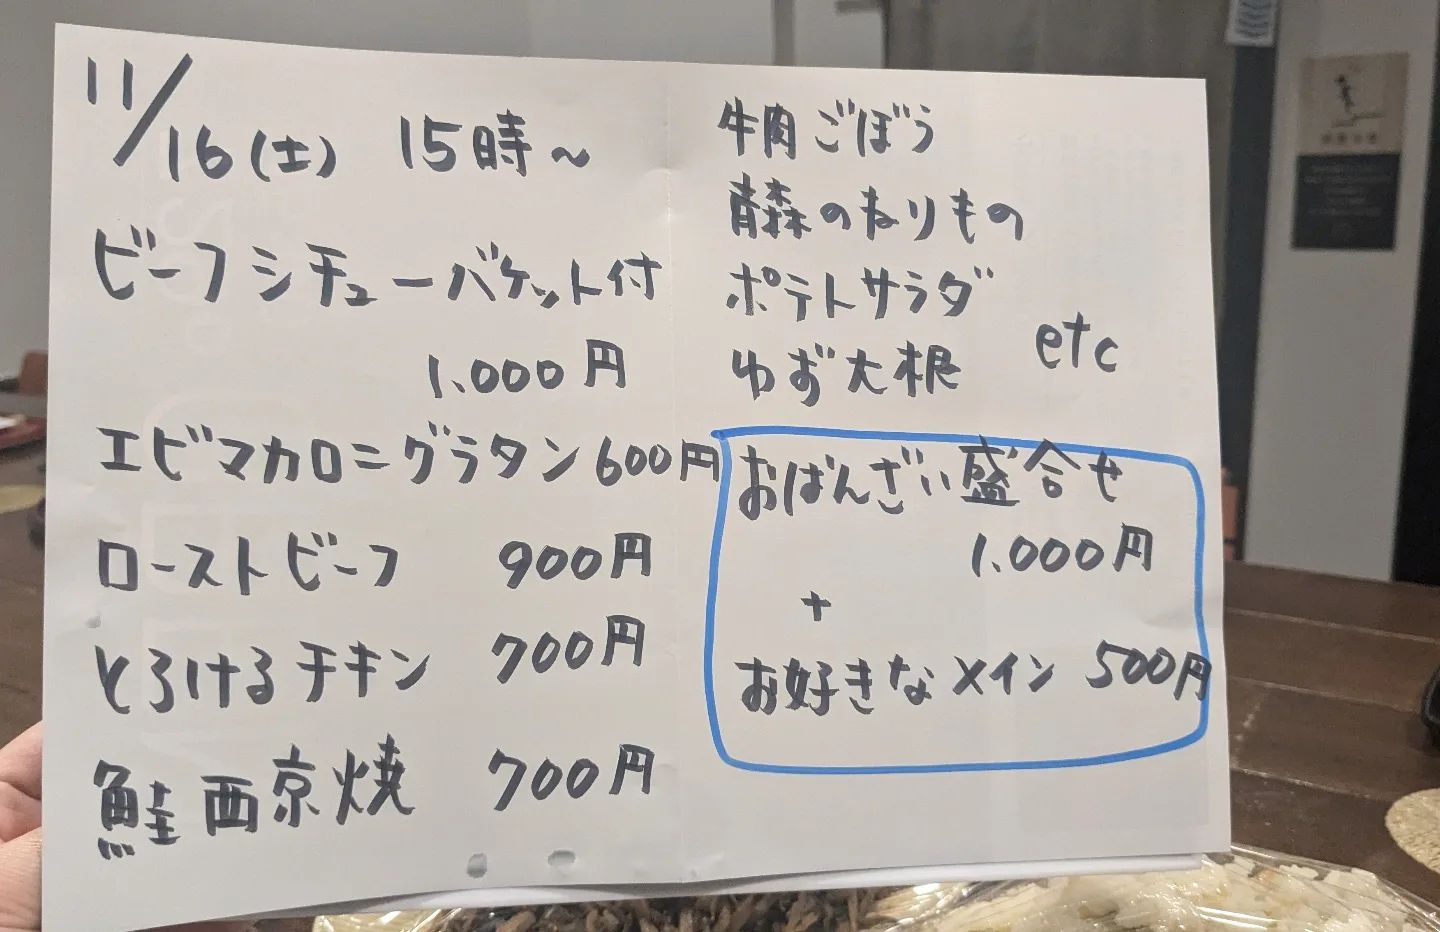 11/16(土) 15時～
ビーフシチューバケット付
1.000円
エビマカロニグラタン 600円
ローストビーフ 900円
とろけるチキン 700円
鮭西京焼 700円
牛肉ごぼう
青森のねりもの
ポテトサラダ
ゆず大根 etc
おばんざい盛合せ
1.000円
+
お好きなメイン 500円